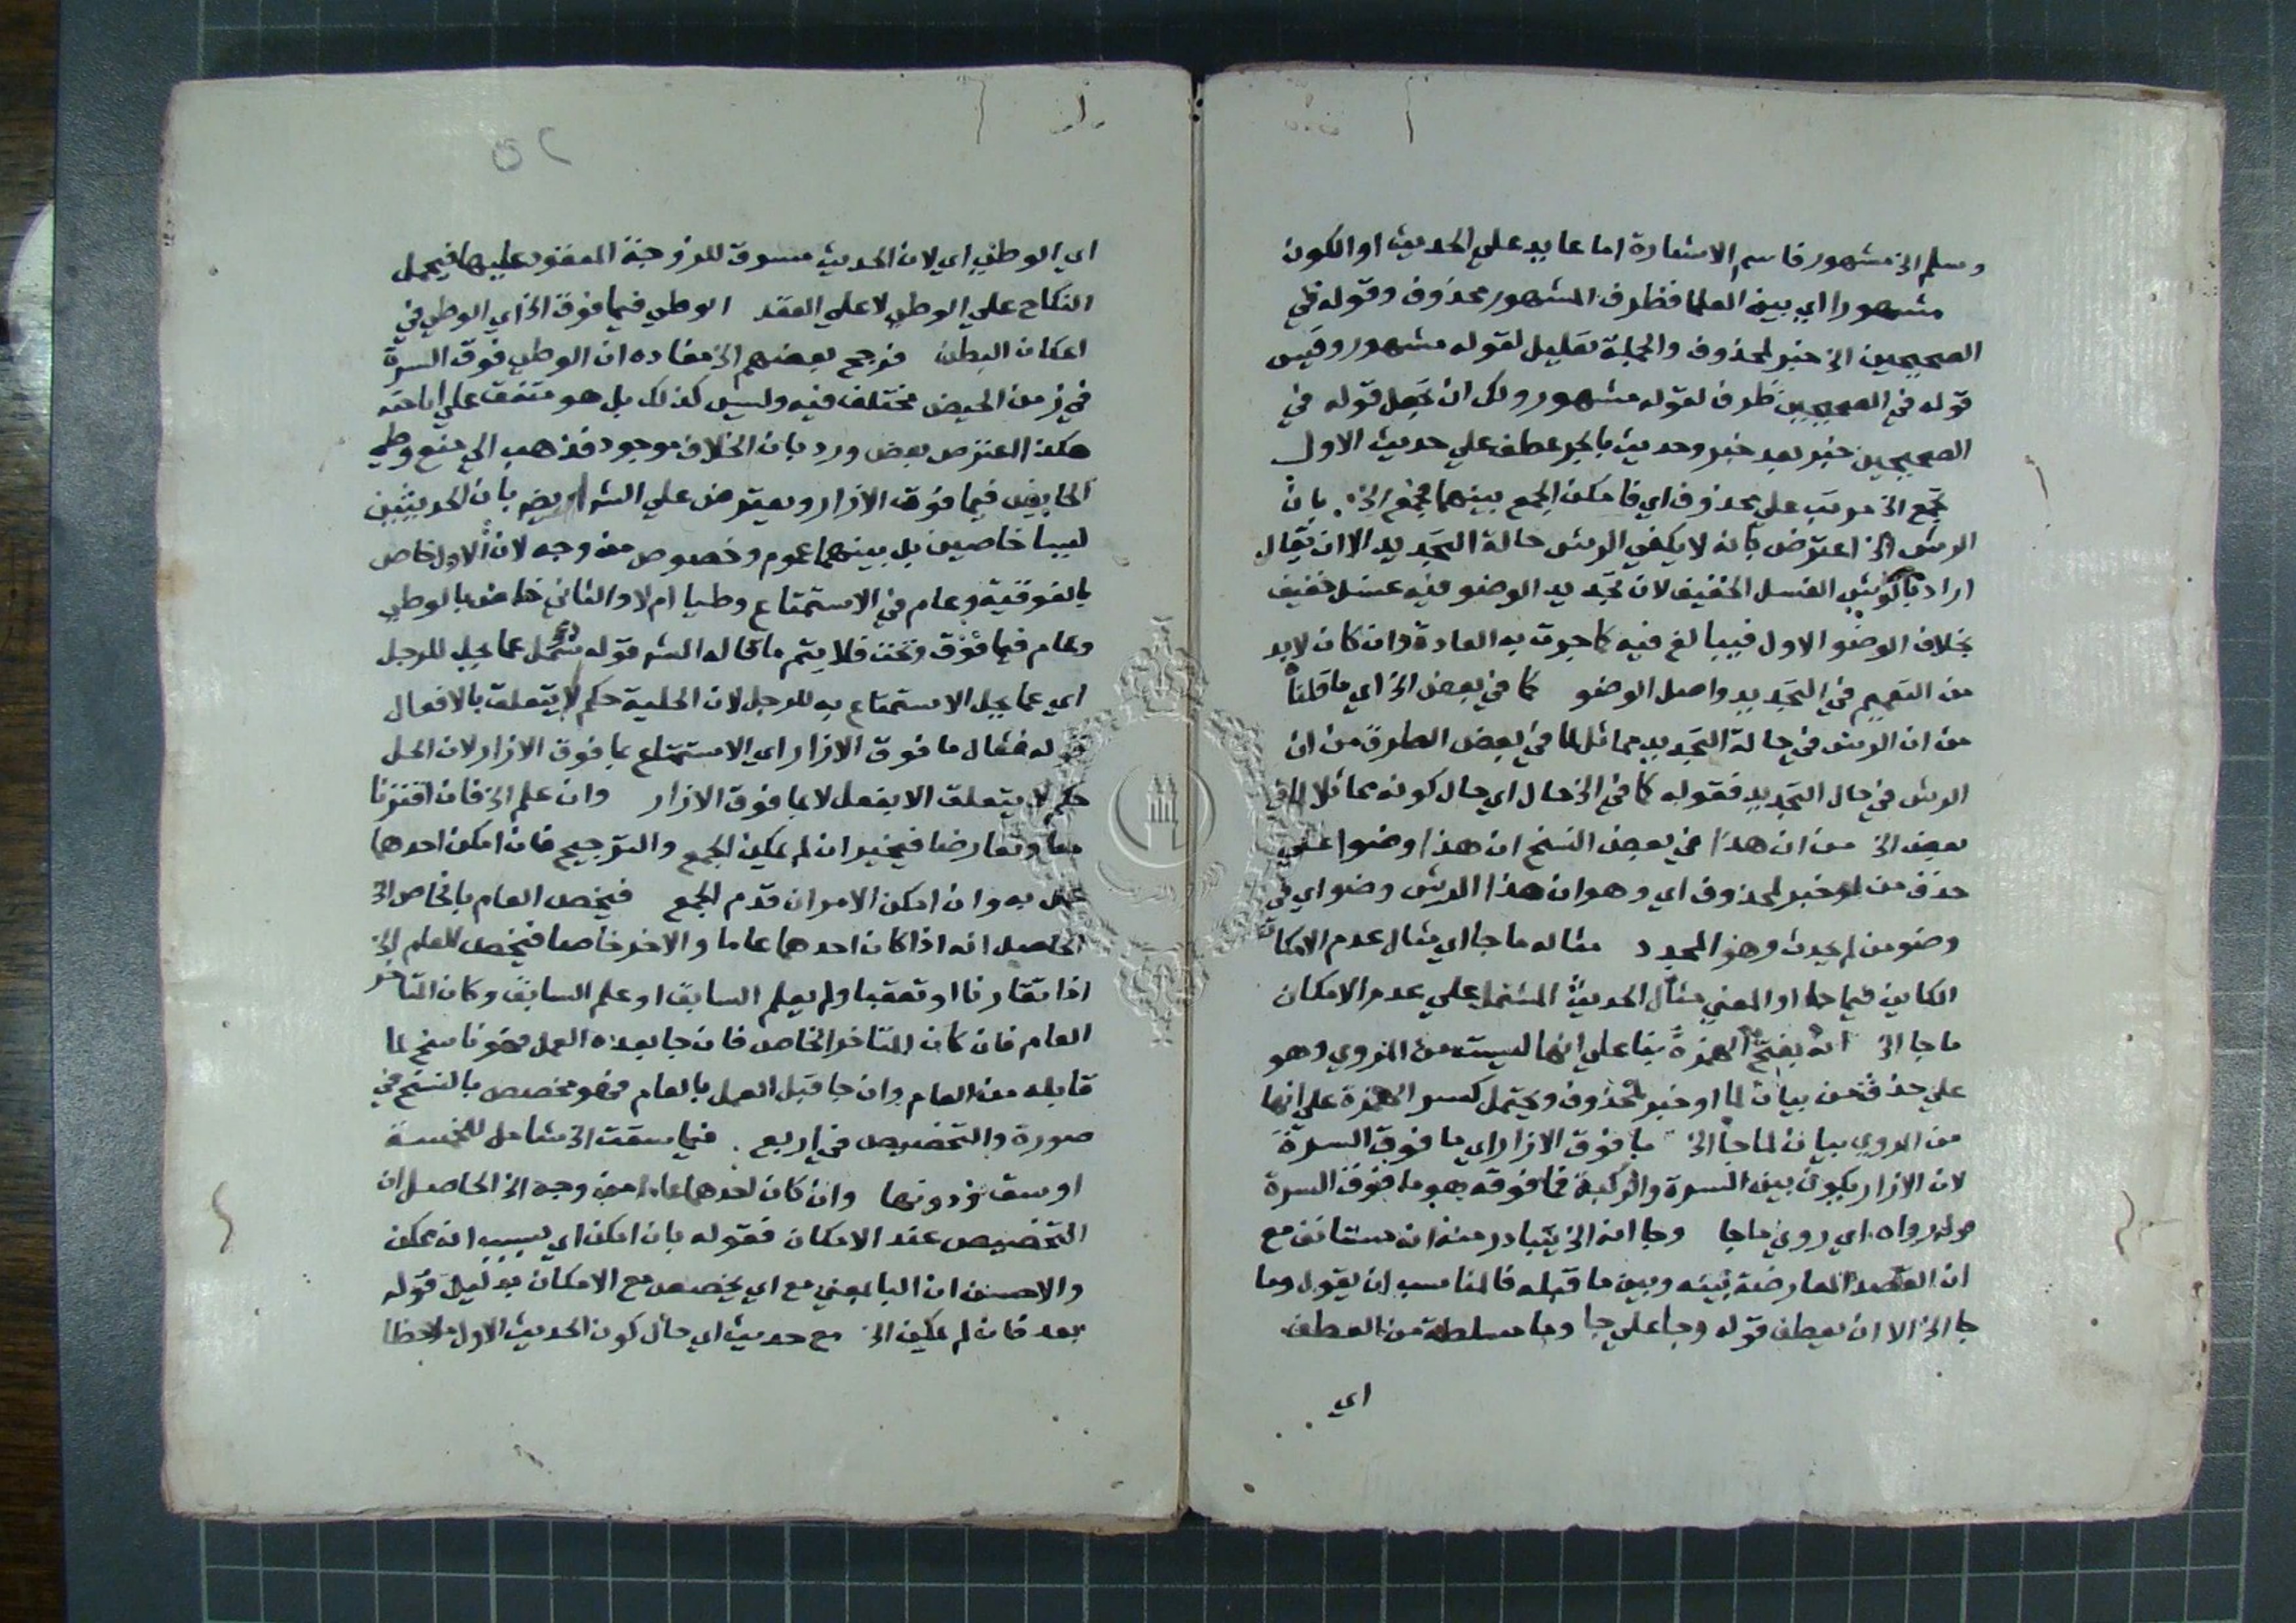 وسلم الخ مشهور فاسم الاشارة اما عايد علي الحديث او الكون
مشهورا اي بين العلما فظرف المشهور محذوف وقوله في
الصحيحين الخ خبر لمحذوف والجملة تعليل لقوله مشهور وقيس
قوله في الصحيحين ظرف لقوله مشهور ولك ان تجعل قوله في
الصحيحين خبر بعد خبر وحديث بالجر عطف علي حديث الاول
نجمع الخ مرتب علي محذوف اي فامكن الجمع بينهما فجمع الخ بان
الرش الخ اعترض بانه لا يكفي الرش حالة التجديد الا ان يقال
اراد بالرش الغسل الخفيف لان تجديد الوضو فيه غسل خفيف
بخلاف الوضو الاول فيبالغ فيه كما جرت به العادة وان كان لابد
من التعميم في التجديد واصل الوضو كما في بعض الخ اي ما قلنا
من ان الرش في حالة التجديد مماثل لما في بعض الطرق من ان
الرش في حال التجديد فقوله كما في الخ حال اي حال كونه مماثلا لما في
بعض الخ من ان هذا في بعض النسخ ان هذا وضوا علي
حذف من خبر لمحذوف اي وهو ان هذا الرش وضو اي في
وضو من لم يحدث وهو المجدد مثاله ما جا اي مثال عدم الامكان
الكاين فيما جا او المعني مثال الحديث المشتمل علي عدم الامكان
ما جا الخ انه بفتح الهمزة بنا علي انها ليست من المروي وهو
علي حذف من بيان لما او خبر لمحذوف ويحتمل كسر الهمزة علي انها
من المروي بيان لما جا الخ ما فوق الازار اي ما فوق السرة
لان الازار يكون بين السرة والركبة فما فوقه هو ما فوق السرة
قوله رواه اي روي ما جا وجا انه الخ يتبادر منه انه مستانف مع
ان القصد المعارضة بينه وبين ما قبله فالمناسب ان يقول وما
جا الخ الا ان يعطف قوله وجا علي جا وما مسلطة من العطف
اي
٥٢
اي الوطي اي لان الحديث مسوق للزوجة المعقود عليها فيحمل
النكاح علي الوطي لا علي العقد الوطي فيما فوق الخ اي الوطي في
اعكان البطن فرجح بعضهم الخ مفاده ان الوطي فوق السرة
في زمن الحيض مختلف فيه وليس كذلك بل هو متفق علي اباحته
هكذا اعترض بعض ورد بان الخلاف موجود فذهب الي منع وطي
الحايض فيما فوق الازار ويعترض علي الشه ايضه بان الحديثين
ليسا خاصين بل بينهما عموم وخصوص من وجه لان الاول خاص
بالفوقية وعام في الاستمتاع وطيا ام لا والثاني خاص بالوطي
وعام فيما فوق وتحت فلا يتم ما قاله الشه قوله سئل عما يحل للرجل
اي عما يحل الاستمتاع به للرجل لان الحلية حكم لا يتعلق بالافعال
قوله فقال ما فوق الازار اي الاستمتاع بما فوق الازار لان الحل
حكم لا يتعلق الا بفعل لا بما فوق الازار وان علم الخ فان اقترنا
معا وتعارضا فيخير ان لم يمكن الجمع والترجيح فان امكن احدهما
عمل به وان امكن الامران قدم الجمع فيخص العام بالخاص الخ
الحاصل انه اذا كان احدهما عاما والاخر خاصا فيخص العام الخ
اذا تقارنا او تعقبا ولم يعلم السابق او علم السابق وكان المتاخر
العام فان كان المتاخر الخاص فان جا بعده العمل فهو ناسخ لما
قابله من العام وان جا قبل العمل بالعام فهو مخصص بالنسخ في
صورة والتخصيص في اربع فيما سقت الخ شامل للخمسة
اوسق ودونها وان كان احدهما عاما من وجه الخ الحاصل ان
التخصيص عند الامكان فقوله بان امكن اي بسبب انه يمكن
والاحسن ان البا بمعني مع اي يخصص مع الامكان بدليل قوله
بعد فان لم يمكن الخ مع حديث اي حال كون الحديث الاول ملاحظا